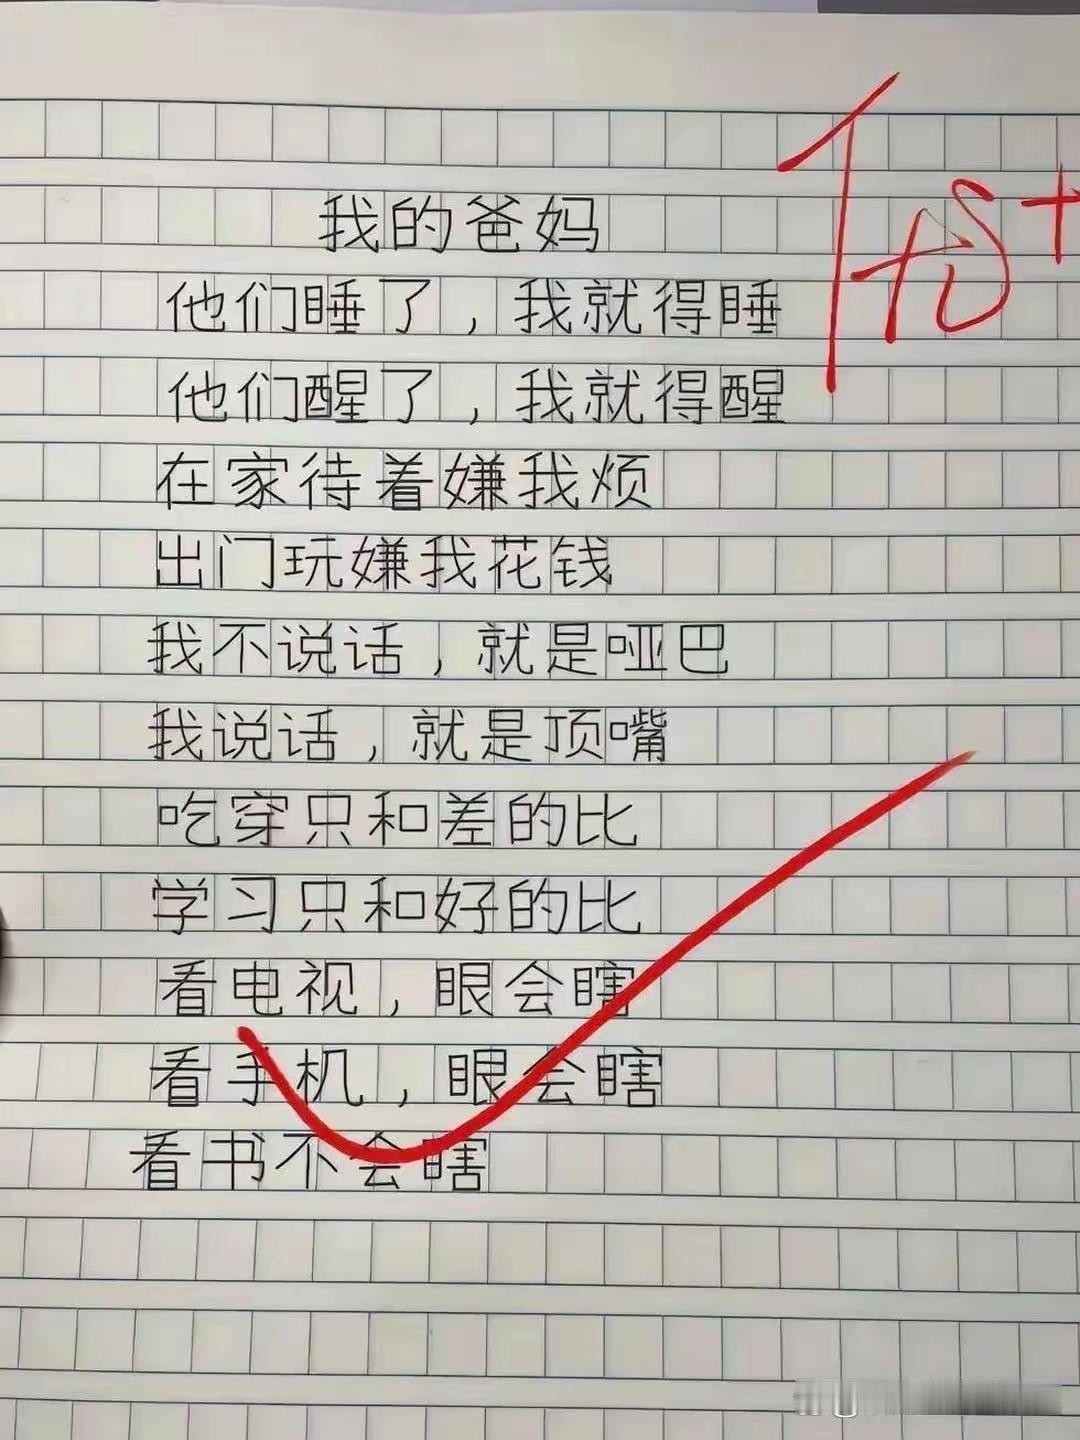 我的爸妈
他们睡了，我就得睡
他们醒了，我就得醒
在家待着嫌我烦
出门玩嫌我花钱
我不说话，就是哑巴
我说话，就是顶嘴
吃穿只和差的比
学习只和好的比
看电视，眼会瞎
看手机，眼会瞎
看书不会瞎